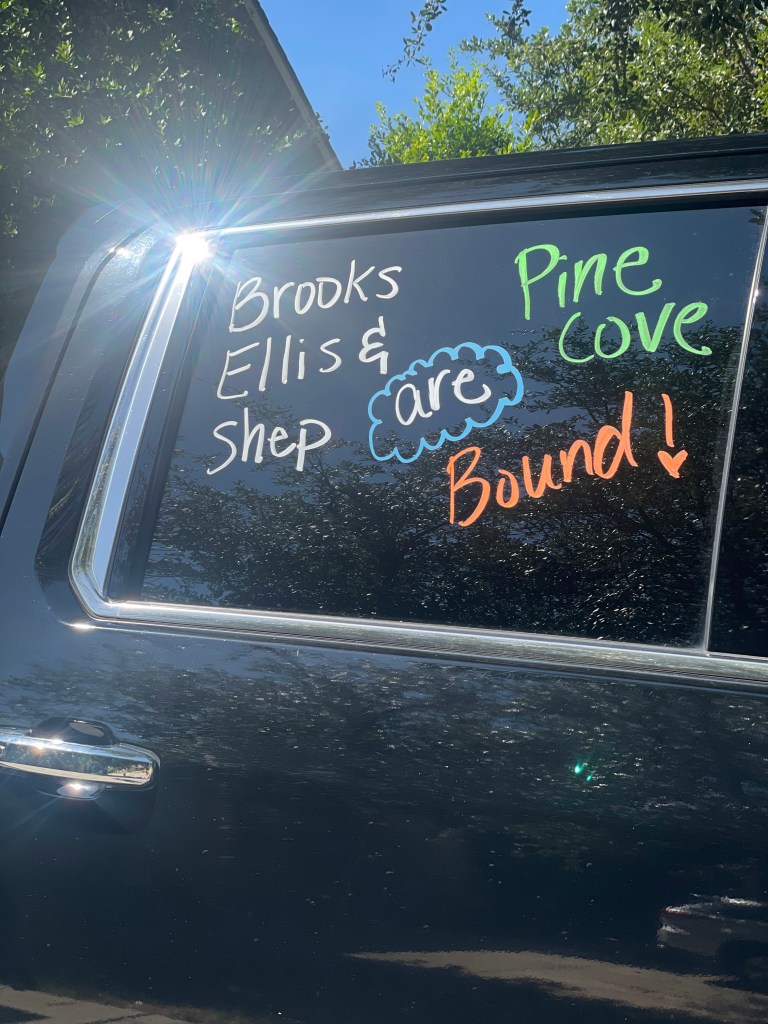 Brooks
Ellis &
Shep
are
Pine
Cove
Bound!